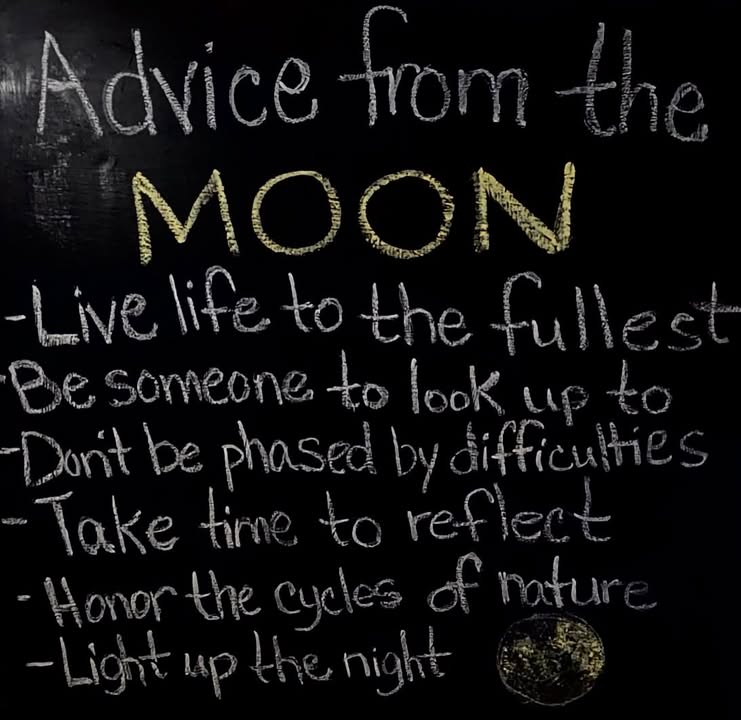 Advice from the
MOON
-Live life to the fullest
-Be someone to look up to
-Don't be phased by difficulties
-Take time to reflect
-Honor the cycles of nature
-Light up the night